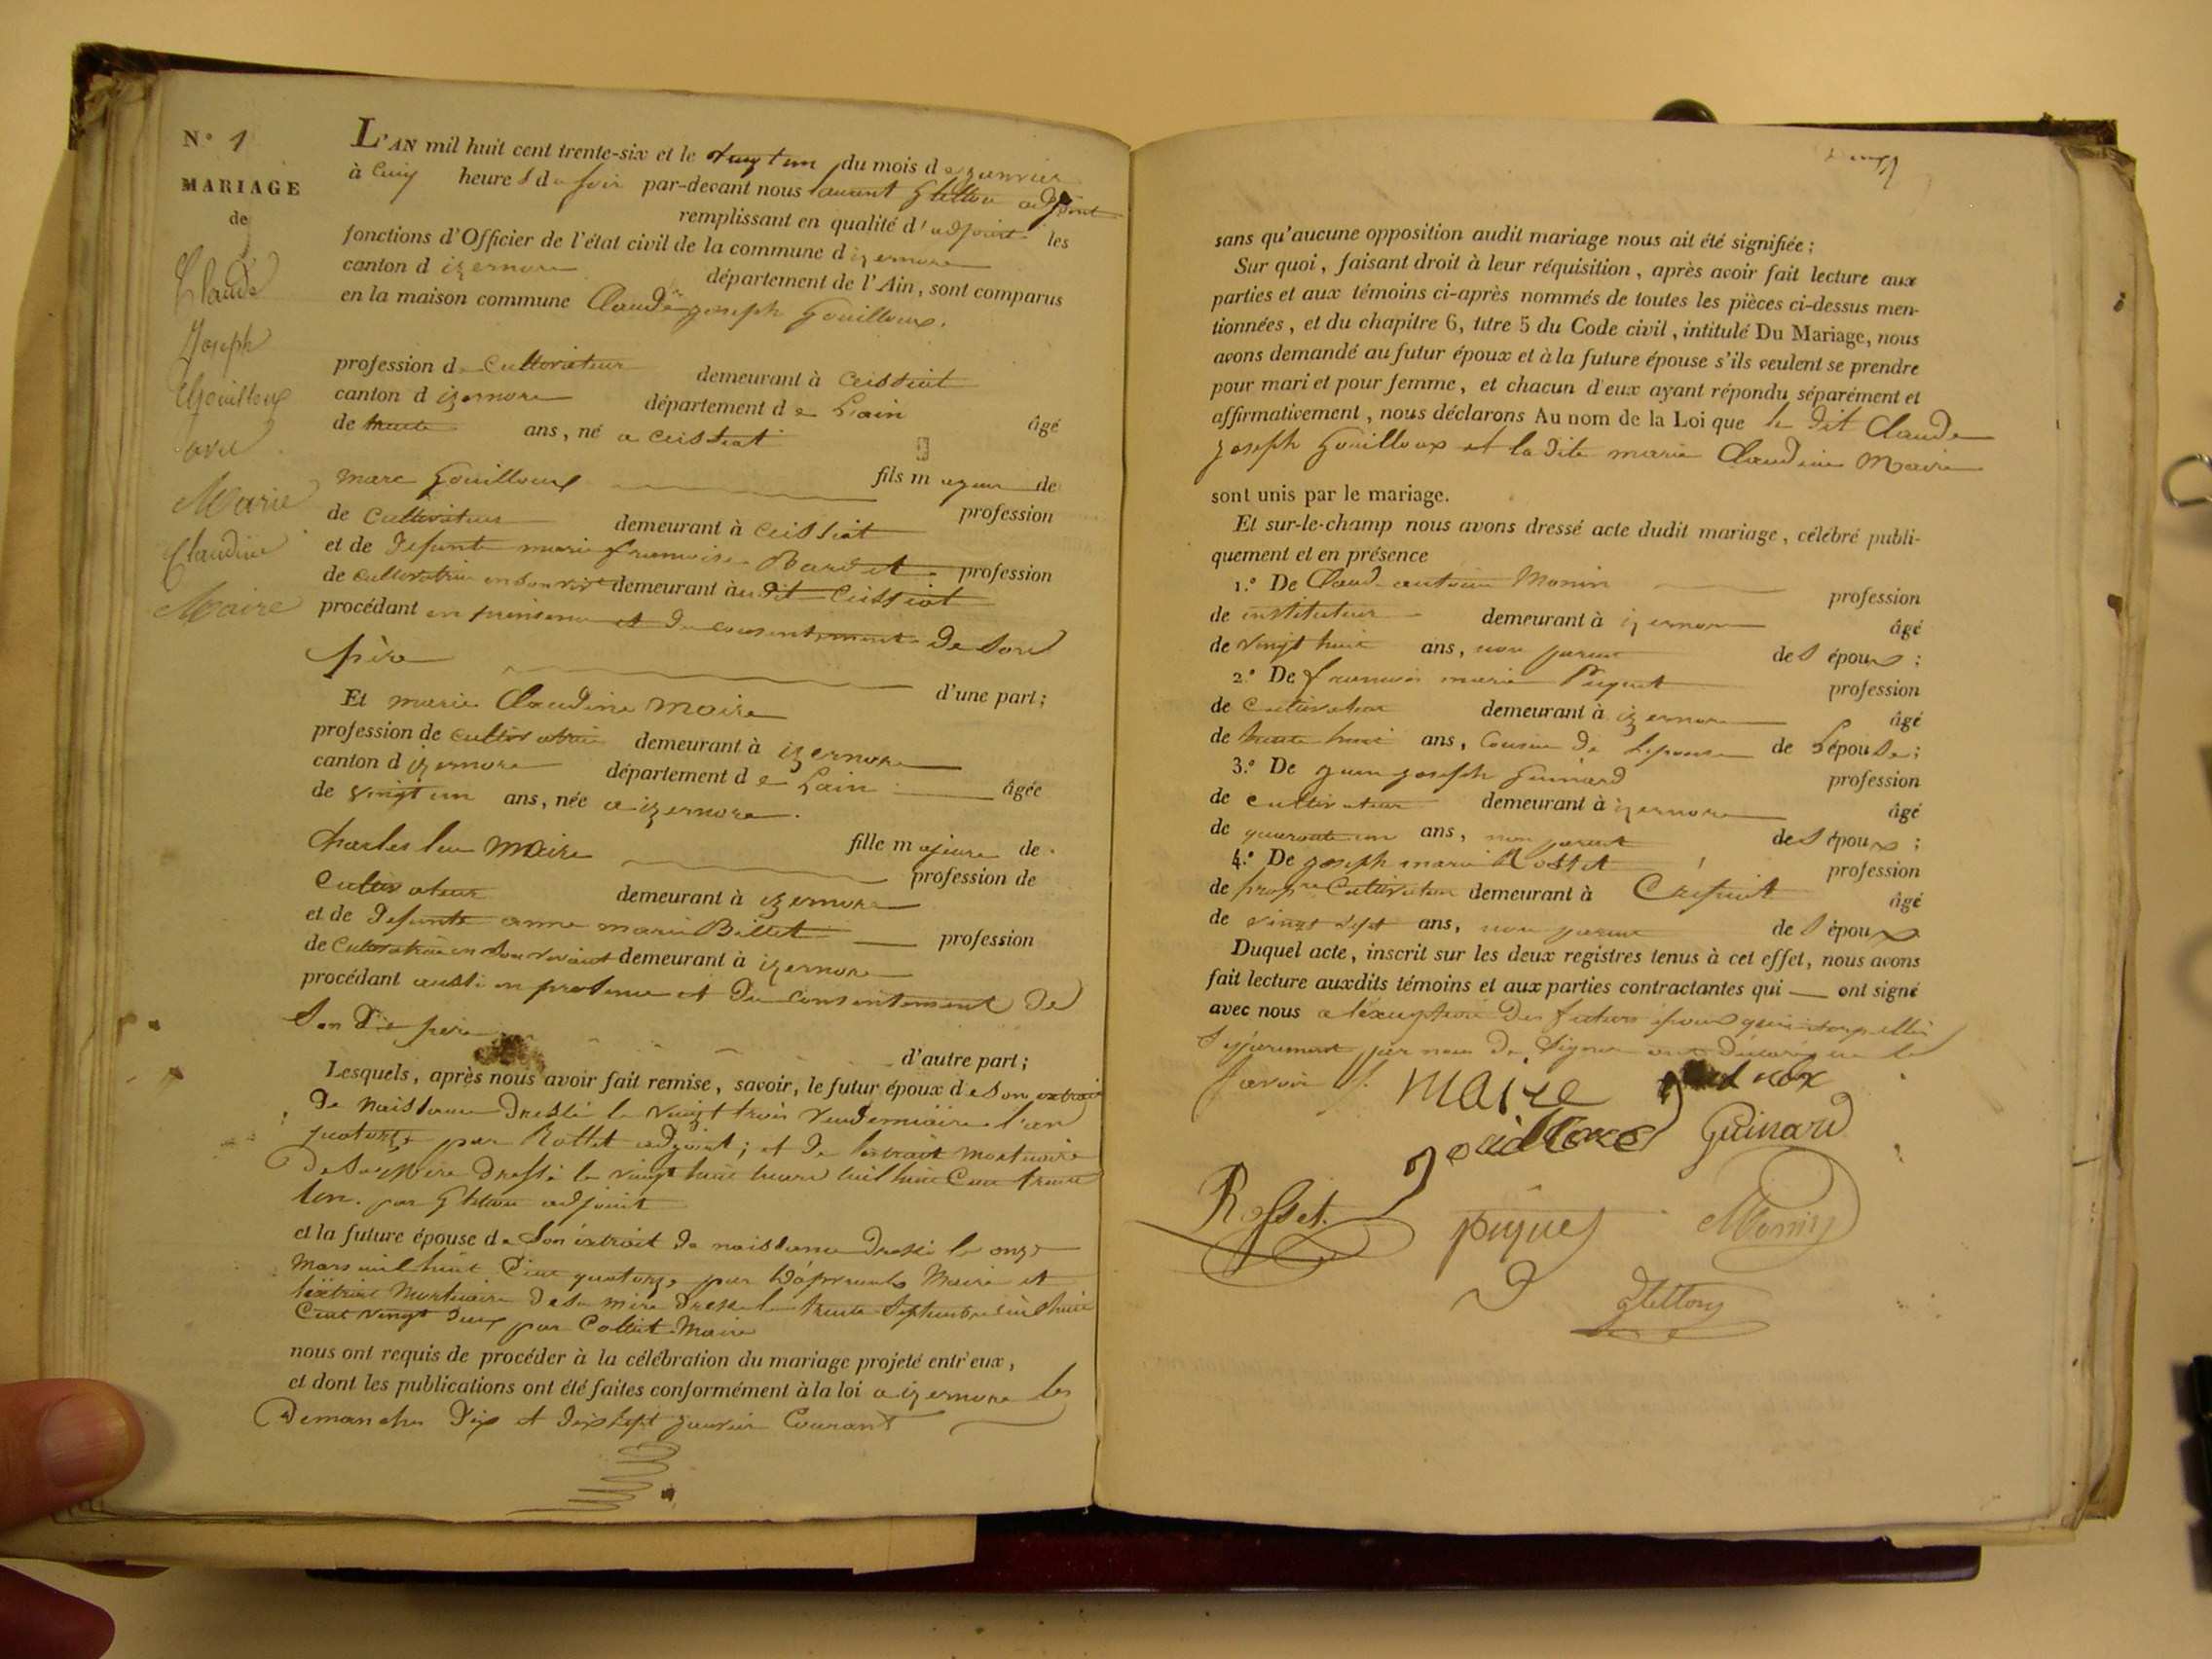 N.° 1
MARIAGE
de
Claude
Joseph
Gouilloux
avec
Marie
Claudine
Maire
L'AN mil huit cent trente-six et le vingt un du mois de janvier
à cinq heures du soir par-devant nous laurent adjoint
remplissant en qualité d'adjoint les
fonctions d'Officier de l'état civil de la commune d izernore
canton d izernore département de l'Ain, sont comparus
en la maison commune Claude joseph Gouilloux.
profession de Cultivateur demeurant à Ceissiat
canton d izernore département de Lain âgé
de trente ans, né a Ceissiat
fils majeur de
marc Gouilloux profession
de Cultivateur demeurant à Ceissiat
et de defunte marie francoise Bardet profession
de cultivatrice en son viv.t demeurant au dit Ceissiat
procédant en presence et du consentement de son
père
d'une part;
Et marie Claudine Maire
profession de cultivatrice demeurant à izernore
canton d izernore département de Lain âgée
de vingt un ans, née a izernore.
fille majeure de
Charles leu Maire profession de
Cultivateur demeurant à izernore
et de defunte anne marie Billet profession
de Cultivatrice en son vivant demeurant à izernore
procédant aussi en presence et du consentement de
son dit père
d'autre part;
Lesquels, après nous avoir fait remise, savoir, le futur époux de son extrait
de naissance dressé le vingt trois Vendemiaire l'an
quatorze par Rottet adjoint; et de l'extrait mortuaire
de sa mère dressé le vingt huit mars mil huit Cent trente
par adjoint
et la future épouse de son extrait de naissance dressé le onze
Mars mil huit Cent quatorze par Maire et
l'extrait Mortuaire de sa mère dressé le trente Septembre mil huit
Cent vingt deux par Collet Maire
nous ont requis de procéder à la célébration du mariage projeté entr'eux,
et dont les publications ont été faites conformément à la loi a izernore les
Demanches dix et dix sept janvier Courant
sans qu'aucune opposition audit mariage nous ait été signifiée;
Sur quoi, faisant droit à leur réquisition, après avoir fait lecture aux
parties et aux témoins ci-après nommés de toutes les pièces ci-dessus men-
tionnées, et du chapitre 6, titre 5 du Code civil, intitulé Du Mariage, nous
avons demandé au futur époux et à la future épouse s'ils veulent se prendre
pour mari et pour femme, et chacun d'eux ayant répondu séparément et
affirmativement, nous déclarons Au nom de la Loi que le dit Claude
joseph Gouilloux et la dite marie Claudine Maire
sont unis par le mariage.
Et sur-le-champ nous avons dressé acte dudit mariage, célébré publi-
quement et en présence
1.° De Claude antoine Monin profession
de instituteur demeurant à izernore âgé
de vingt huit ans, non parent des époux;
2.° De francois marie Puquet profession
de Cultivateur demeurant à izernore âgé
de trente huit ans, Cousin de lepouse de Lépouse;
3.° De jean joseph Guinard profession
de cultivateur demeurant à izernore âgé
de quarante un ans, non parent des époux;
4.° De joseph marie Rosset profession
de prop.re Cultivateur demeurant à âgé
de vingt sept ans, non parent des époux
Duquel acte, inscrit sur les deux registres tenus à cet effet, nous avons
fait lecture auxdits témoins et aux parties contractantes qui ont signé
avec nous a léxception des futurs époux qui interpellés
séparement par nous de signer ont déclaré ne le
savoir
Maire
Gouilloux Guinard
Rosset. puque Monin